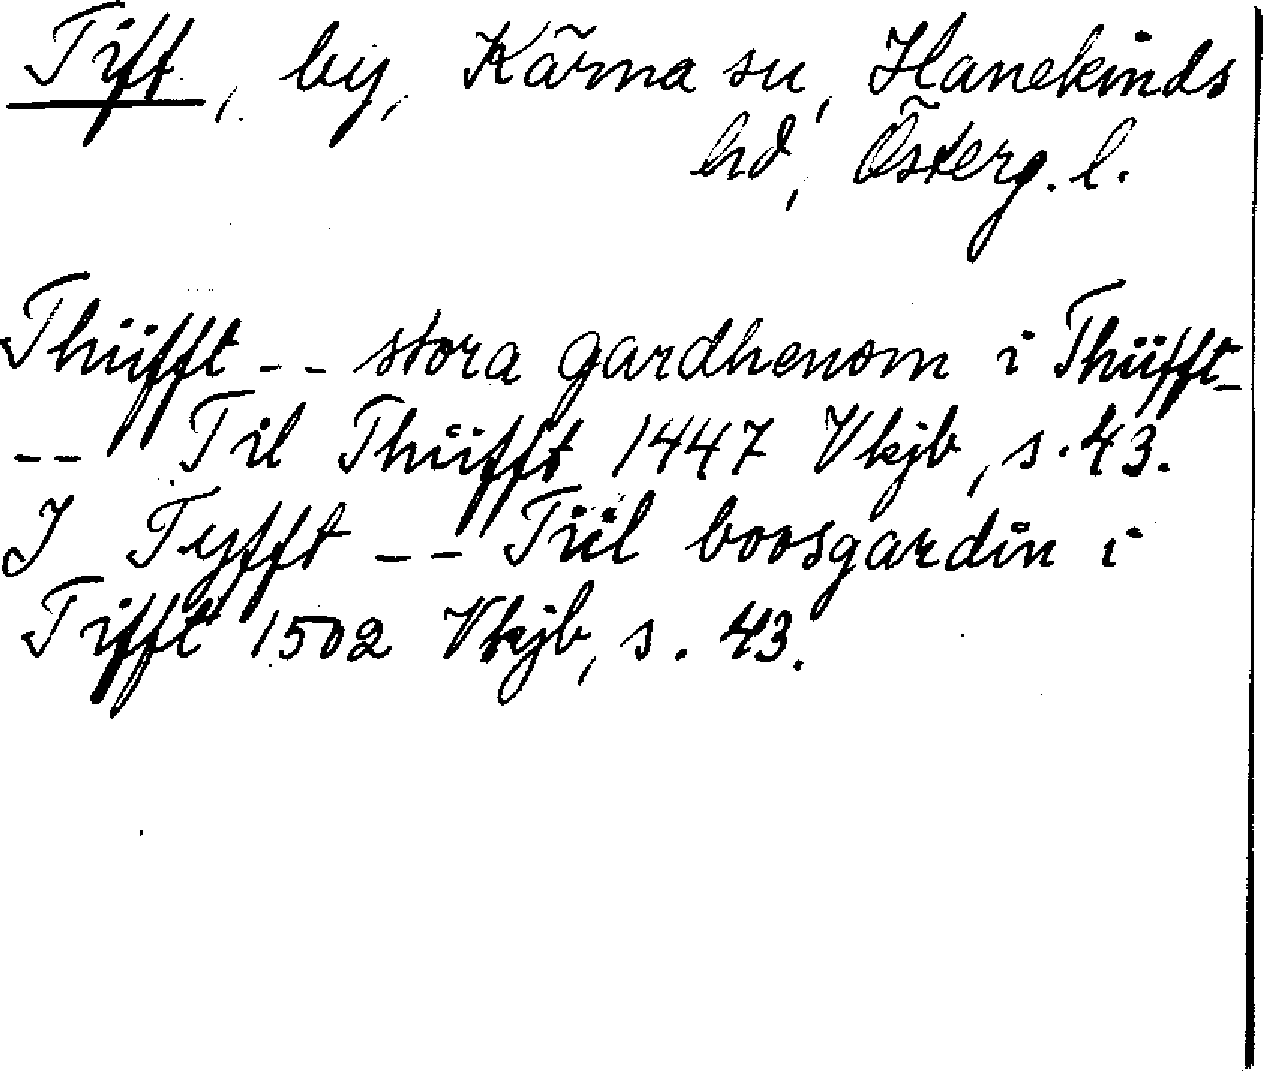 Tift, by, Kärna sn, Hanekinds
hd, Österg. l.
Thiifft -- stora gardhenom i Thiifft-
-- Til Thiifft 1447 Vkjb, s. 43.
I Tyfft -- Tiil boosgardin i
Tifft 1502 Vkjb, s. 43.